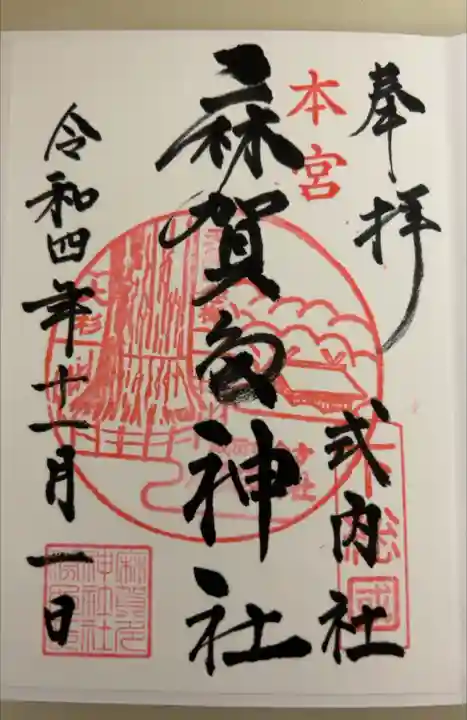 奉拝
本宮
式内社
下総國
麻賀多神社
令和四年十一月一日